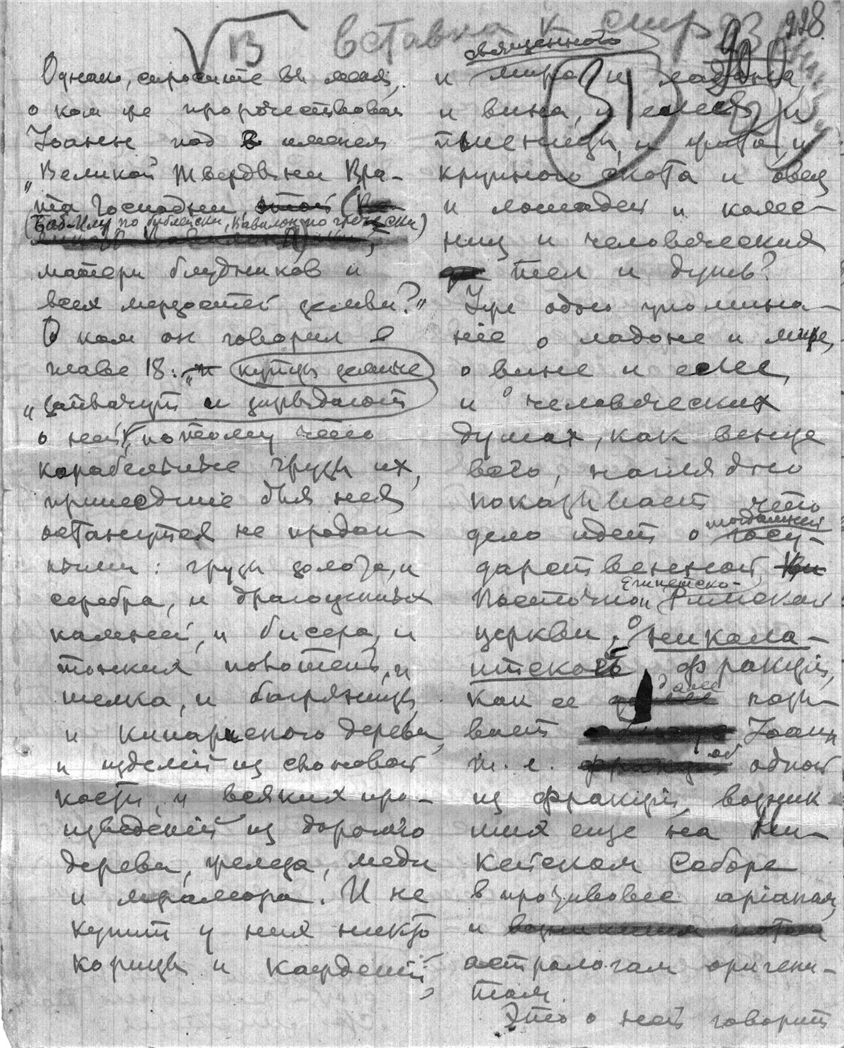 В вставка к стр 93
228
31
Однако, спросите вы меня,
о ком же пророчествовал
Іоанн под именем
„Великой Твердыни Вра-
та Господни
(Баб-Илу по библейски, Вавилон по гречески)
матери блудников и
всех мерзостей земли?"
О ком он говорил в
главе 18: „и купцы земные
„заплачут и зарыдают
о ней, потому что
корабельные грузы их,
пришедшие для нея
останутся не продан-
ными: грузы золота, и
серебра, и драгоценных
камней, и бисера, и
тонких полотен, и
шелка, и багряницы,
и кипарисного дерева,
и изделий из слоновой
кости, и всяких про-
изведений из дорогого
дерева, железа, меди
и мрамора. И не
купит у них никто
корицы и кардемий,
священного
и мира и ладона,
и вина, и елея, и
пшеницы, и
крупного скота и овец
и лошадей и колес-
ниц и человеческих
тел и душ?
Уже одно упомина-
ние о ладоне и мире,
о вине и елее,
и о человеческих
душах, как венце
всего, наглядно
показывает что
дело идет о тогдашней госу-
дарственной
Восточной Египетско-Римской
церкви, о никола-
итской фракции,
как ее далее назы-
вает Іоанн
т. е. об одной
из фракций, возник
ших еще на Ни-
кейском Соборе
в противовес аріанам,
и
астрологам оригени-
там.
Это о ней говорит